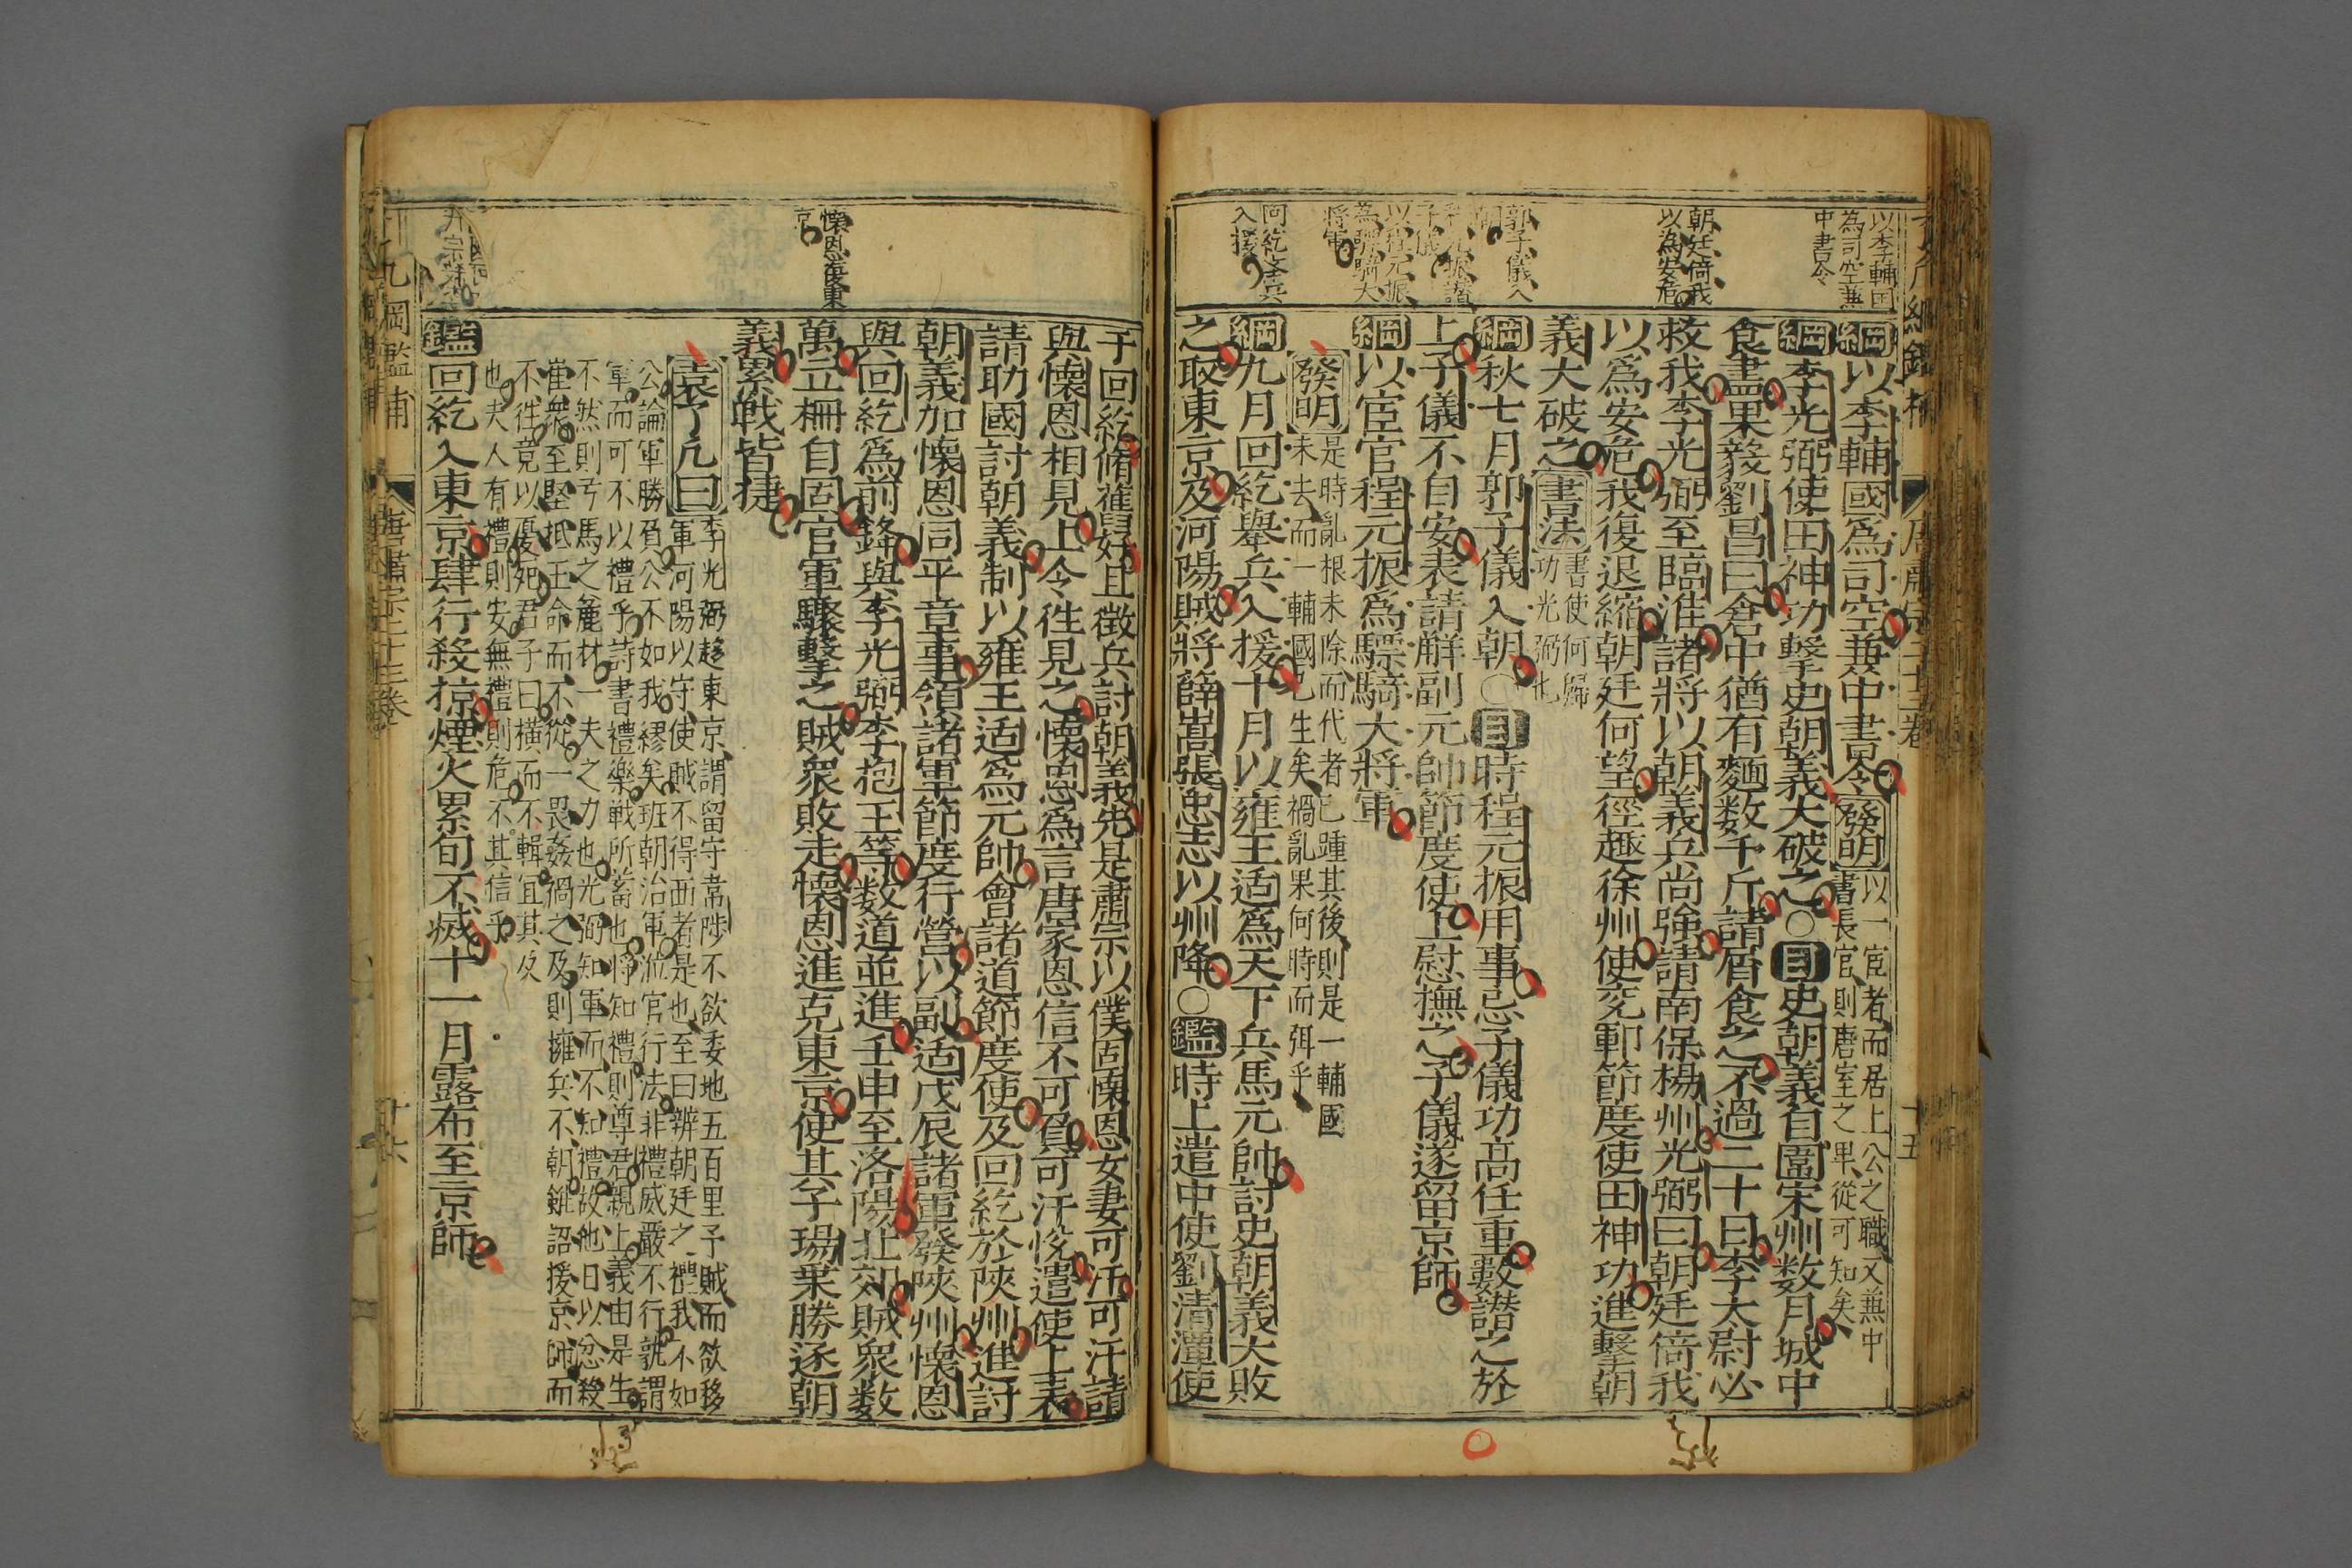 以李輔国
為司空兼
中書令
朝廷倚我
以為安危
郭子儀入
朝
程元振譖
子儀
以程元振
為驃騎大
將軍
回紇舉兵
入援
綱以李輔國爲司空兼中書令發明以一宦者而居上公之職又兼中
書長官則唐室之卑從可知矣
綱李光弼使田神功擊史朝義大破之〇目史朝義自圍宋州数月城中
食盡果毅劉昌曰倉中猶有麵数千斤請屑食之不過二十日李太尉必
救我李光弼至臨淮諸將以朝義兵尚強請南保楊州光弼曰朝廷倚我
以爲安危我復退縮朝廷何望徑趣徐州使兗鄆節度使田神功進擊朝
義大破之書法書使何歸
功光弼也
綱秋七月郭子儀入朝〇目時程元振用事忌子儀功高任重數譖之於
上子儀不自安表請解副元帥節度使上慰撫之子儀遂留京師
綱以宦官程元振爲驃騎大將軍
發明是時亂根未除而代者已踵其後則是一輔國
未去而一輔國已生矣禍亂果何時而弭乎
綱九月回紇舉兵入援十月以雍王适爲天下兵馬元帥討史朝義大敗
之取東京及河陽賊將薛嵩張忠志以州降〇鑑時上遣中使劉清潭使
周肅宗二十三卷
十五
懷恩復東
京
于回紇脩舊好且徵兵討朝義先是肅宗以僕固懷恩女妻可汗可汗請
與懷恩相見上令徃見之懷恩爲言唐家恩信不可負可汗悅遣使上表
請助國討朝義制以雍王适爲元帥會諸道節度使及回紇於陝州進討
朝義加懷恩同平章事領諸軍節度行營以副适戊辰諸軍發陝州懷恩
與回紇爲前鋒與李光弼李抱王等数道並進壬申至洛陽北郊賊衆数
萬立柵自固官軍驟擊之賊衆敗走懷恩進克東京使其子瑒乗勝逐朝
義累戰皆捷
袁了凡曰李光弼趍東京謂留守韋陟不欲委地五百里予賊而欲移
軍河陽以守使賊不得西者是也至曰辨朝廷之禮我不如
公論軍勝負公不如我繆矣班朝治軍涖官行法非禮威嚴不行孰謂
軍而可不以禮乎詩書禮樂戰所蓄也惇知禮則尊君親上義由是生
不然則亐馬之麄材一夫之力也光弼知軍而不知禮故他日以忿殺
崔衆至堅抵王命而不從一畏姦禍之及則擁兵不朝雖詔援京師而
不徃竟以憂死君子曰横而不輯宜其及
也夫人有禮則安無禮則危不其信乎
鑑回紇入東京肆行殺掠煙火累旬不滅十一月露布至京師
唐肅宗二十三卷
十六